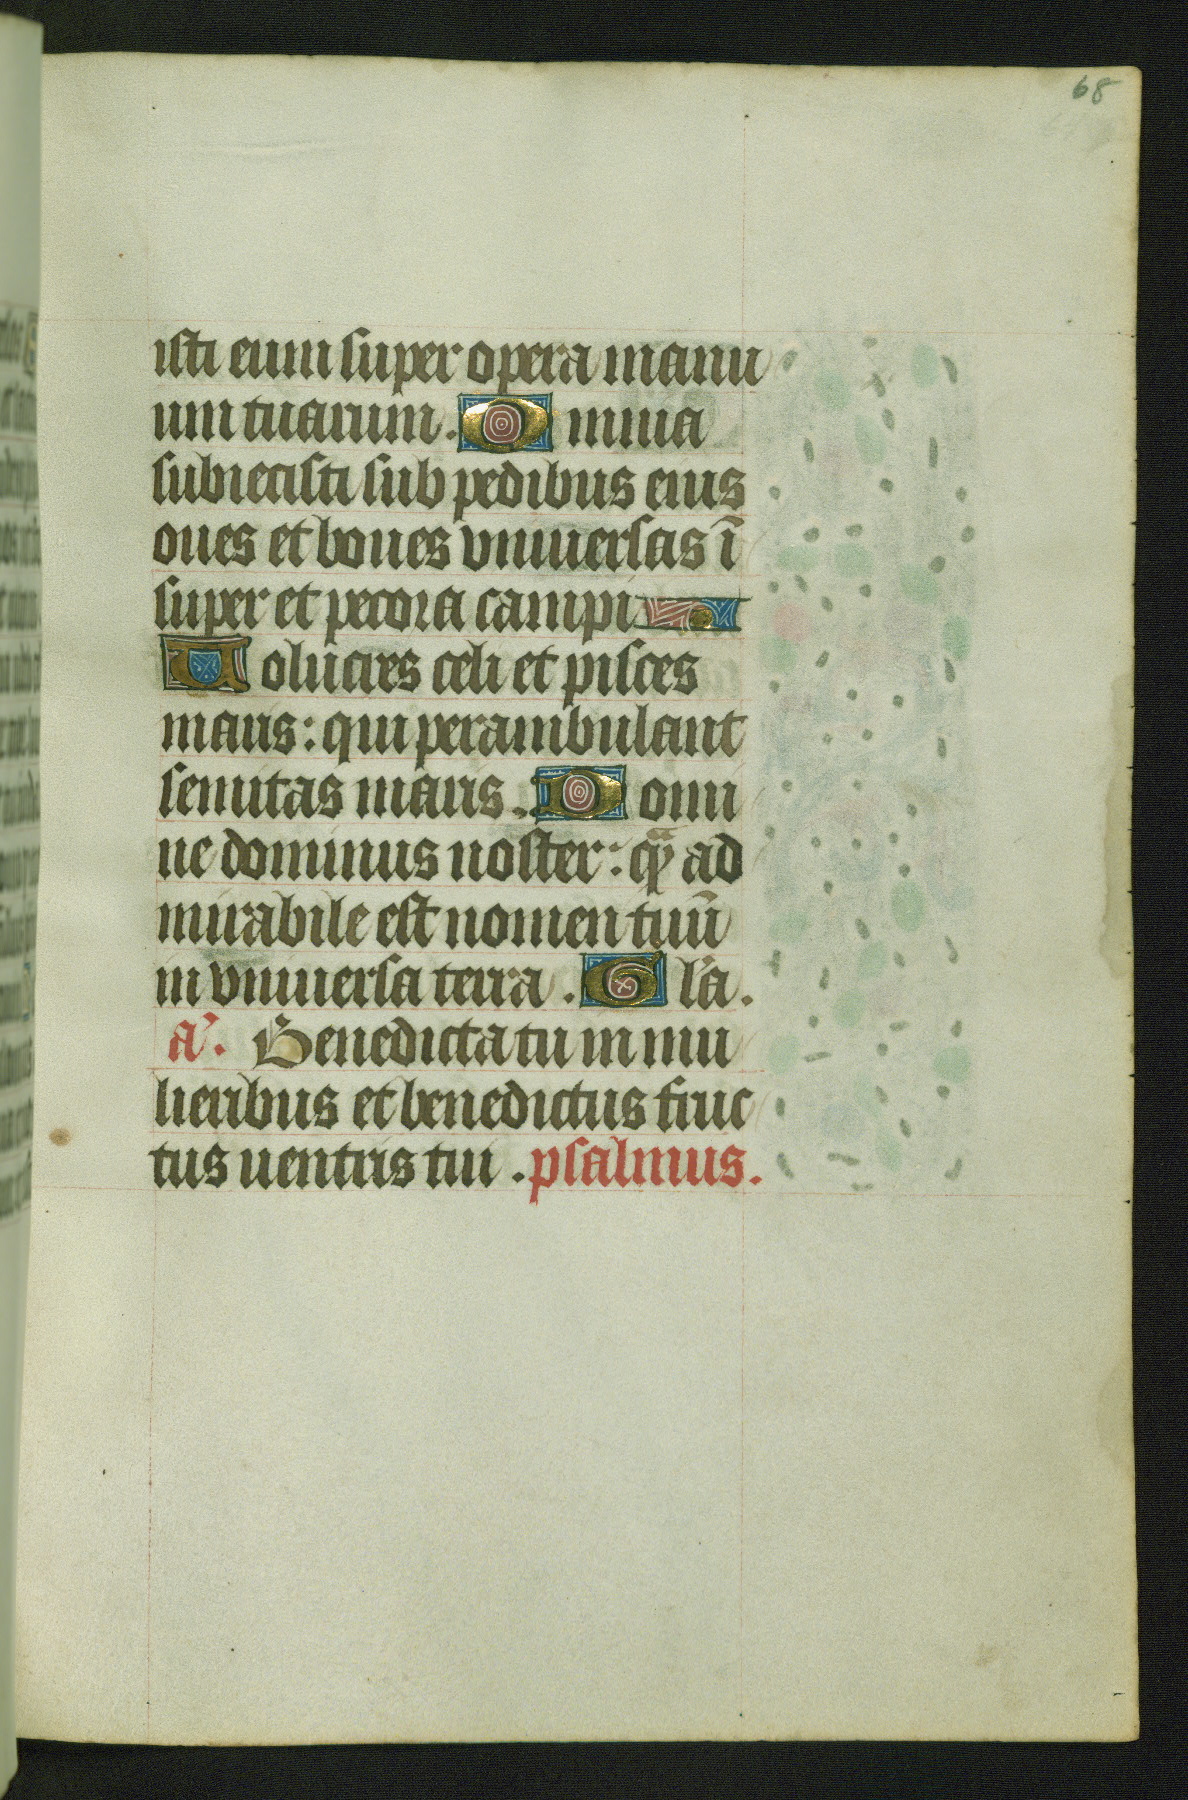 68
isti eum super opera manu
um tuarum. Omnia
subiecisti sub pedibus eius
oues et boues vniuersas ī
super et pecora campi
Uolucres celi et pisces
maris: qui perambulant
semitas maris. Domi
ne dominus noster: qͣꝫ ad
mirabile est nomen tuū
in vniuersa terra. Gl'a.
a'. Benedicta tu in mu
lieribus et benedictus fruc
tus uentris tui. psalmus.